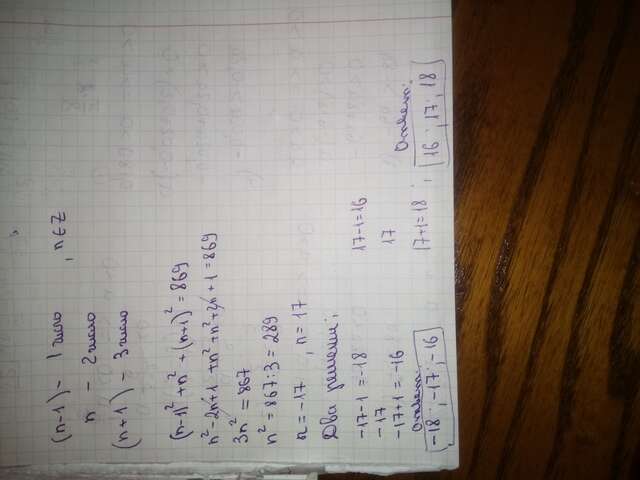 (n-1) - 1 число , n∈Z
n - 2 число
(n+1) - 3 число
(n-1)² + n² + (n+1)² = 869
n² - 2n + 1 + n² + n² + 2n + 1 = 869
3n² = 867
n² = 867:3 = 289
n = -17 , n = 17
Два решения;
-17-1 = -18
-17
-17+1 = -16
Ответ:
-18 ; -17 ; -16
17-1=16
17
17+1=18 ;
Ответ:
16 ; 17 ; 18